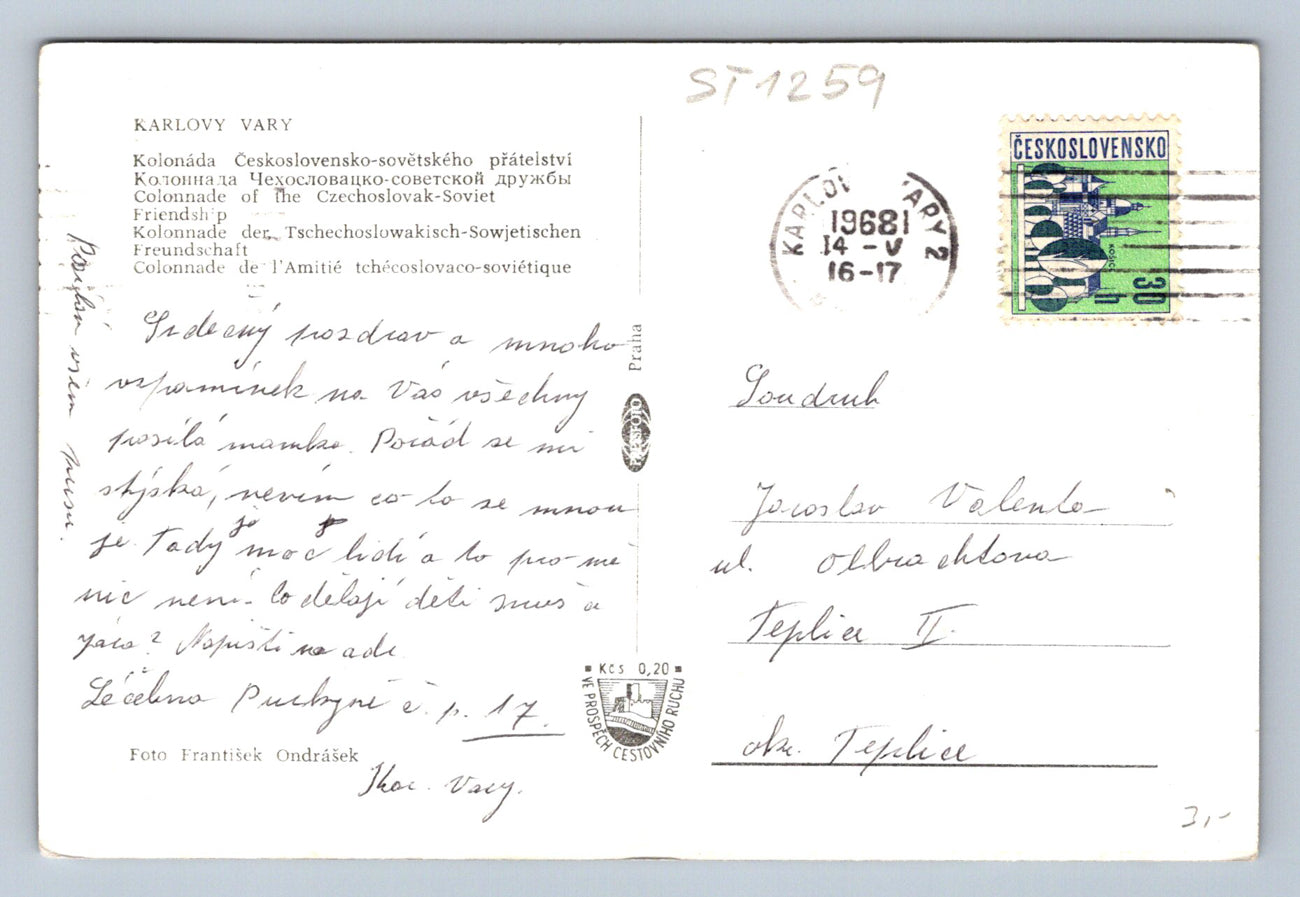 ST1259
KARLOVY VARY
Kolonáda Československo-sovětského přátelství
Колоннада Чехословацко-советской дружбы
Colonnade of the Czechoslovak-Soviet
Friendship
Kolonnade der Tschechoslowakisch-Sowjetischen
Freundschaft
Colonnade de l'Amitié tchécoslovaco-soviétique
Srdečný pozdrav a mnoho
vzpomínek na Vás všechny
posílá mamka. Pořád se mi
stýská, nevím co to se mnou
je. Tady je moc lidí a to pro mě
nic není. Co dělají děti a
Jára? Napište na adr.
Léčebna Purkyně č. p. 17.
Foto František Ondrášek
Kar. Vary.
všem pusu.
Praha
PRESSFOTO
Kčs 0,20
VE PROSPĚCH CESTOVNÍHO RUCHU
KARLOVY VARY 2
1968
14 -V
16-17
ČESKOSLOVENSKO
KOŠICE
30 h
Soudruh
Jaroslav Valenta
ul. Olbrachtova
Teplice II.
okr. Teplice
3,-